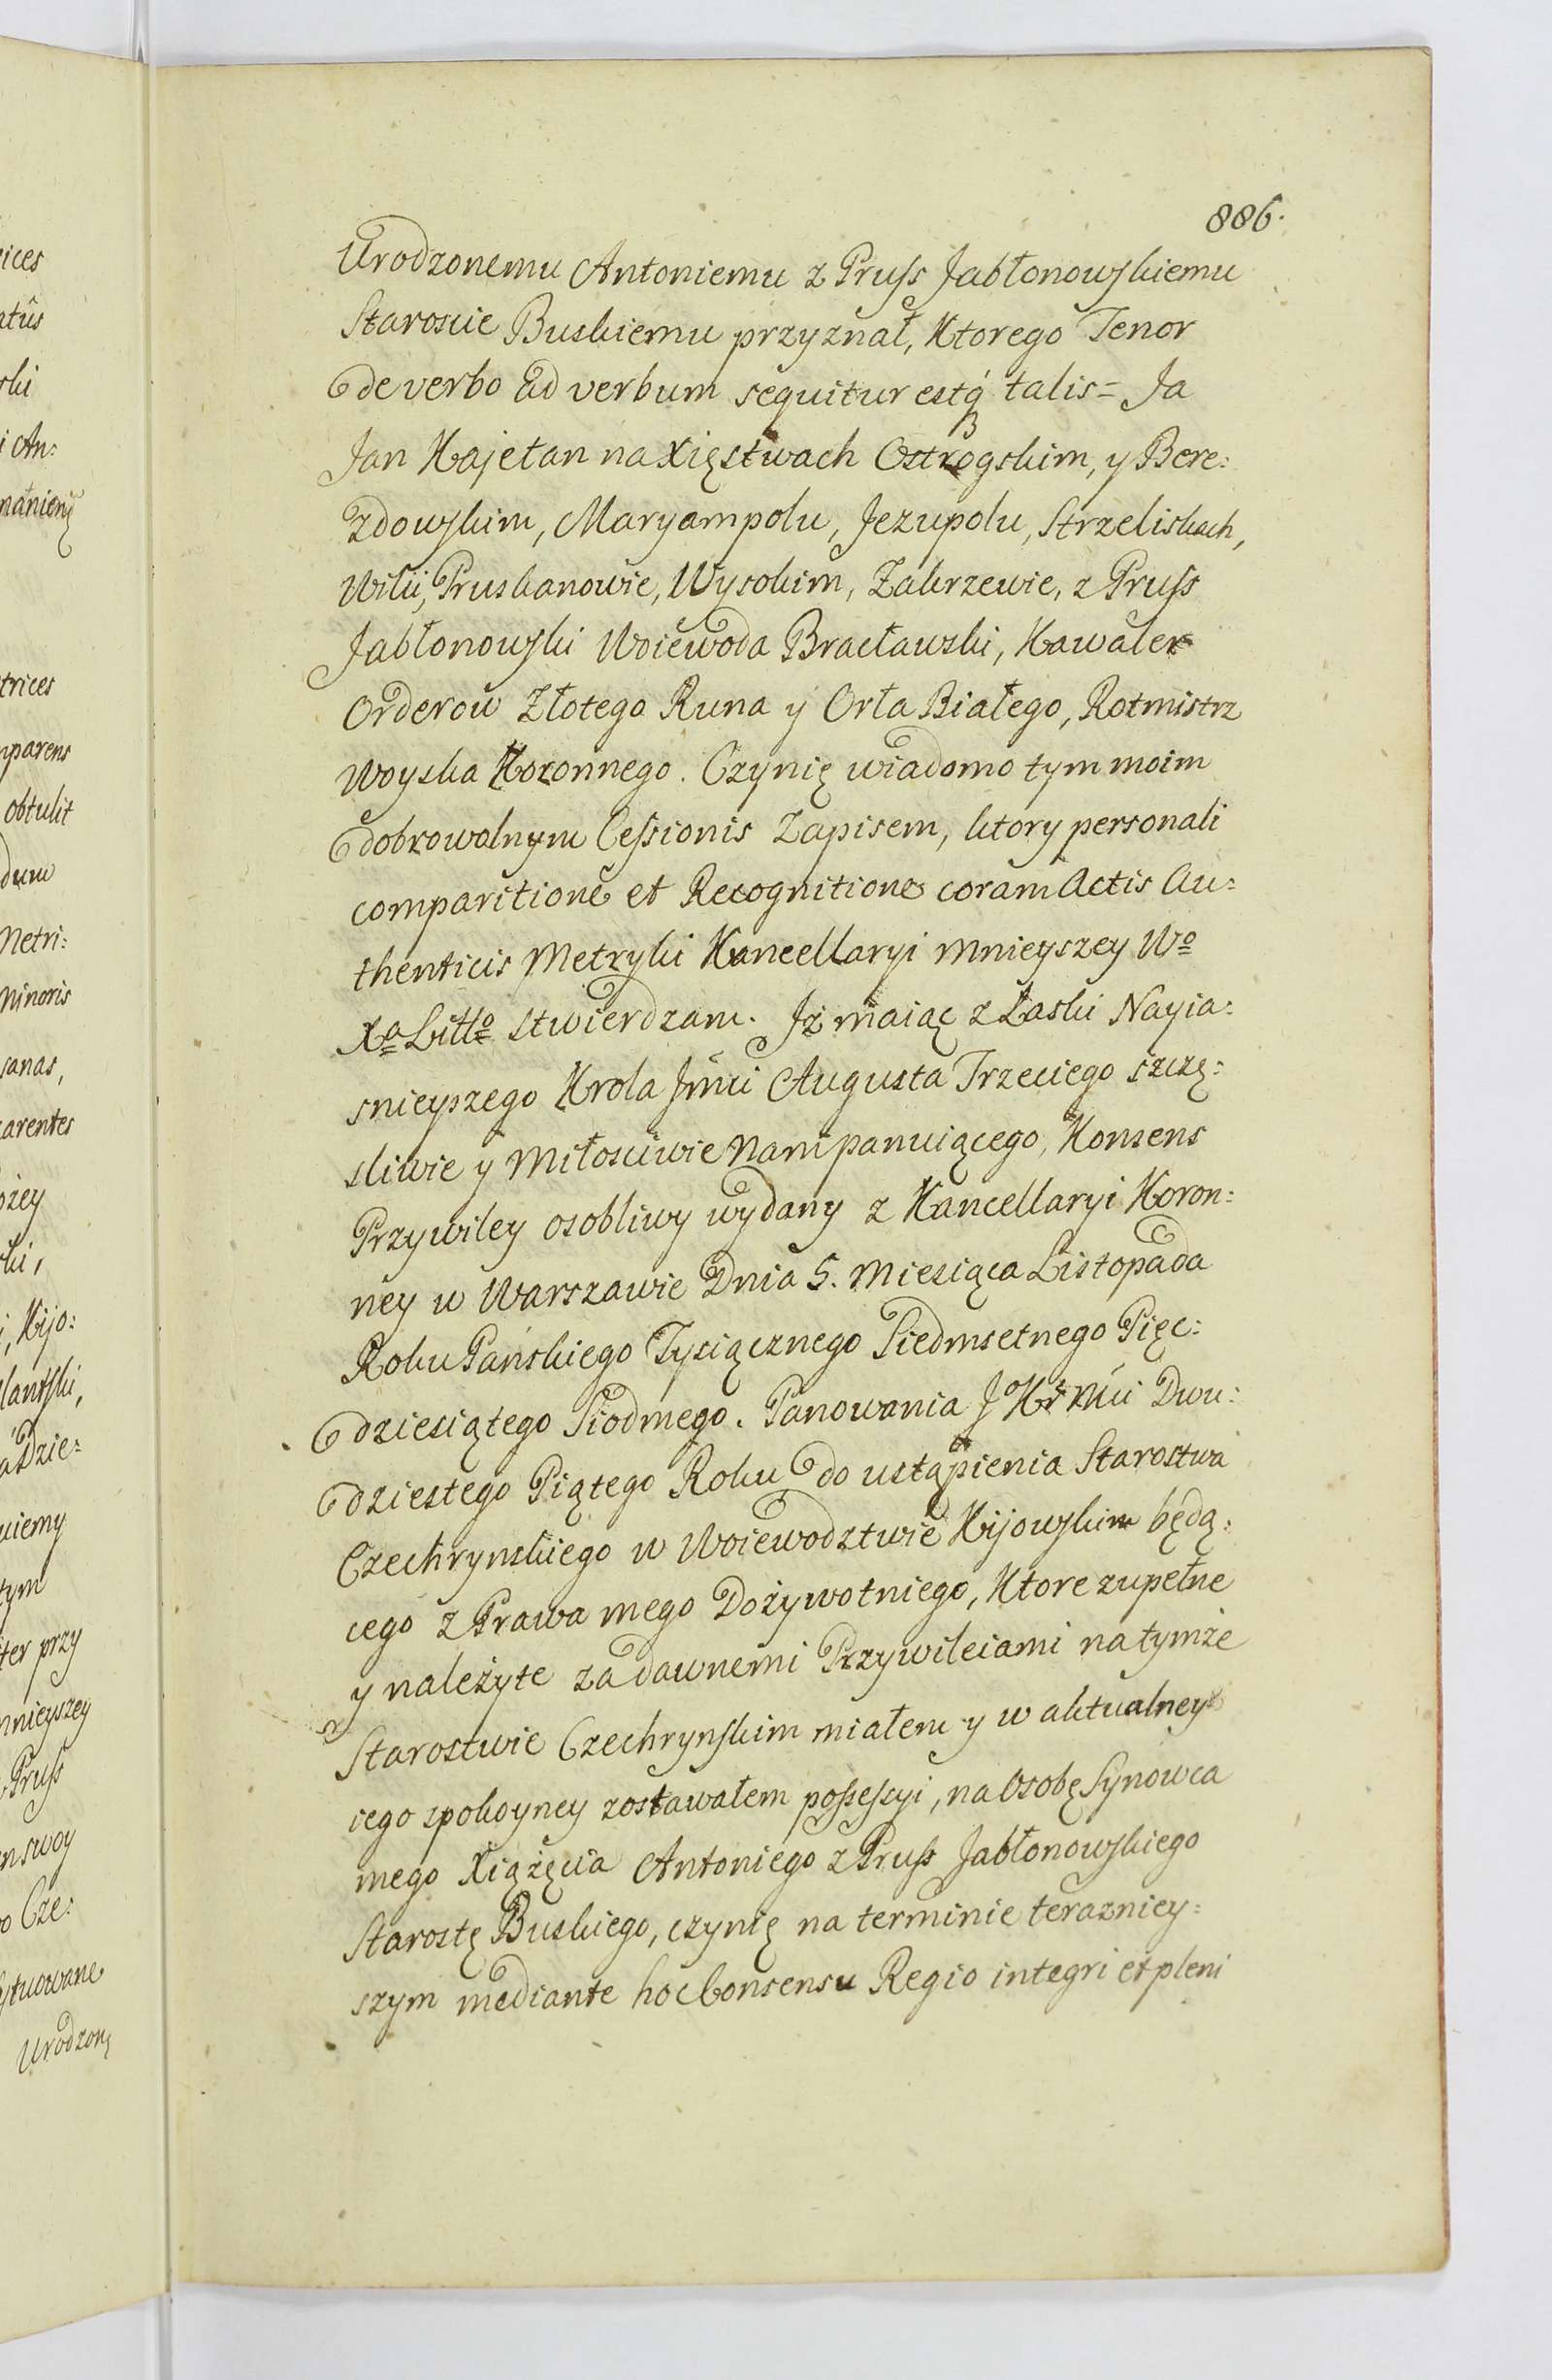 886.
Urodzonemu Antoniemu z Pruss Jabłonowskiemu
Staroscie Buskiemu przyznał, Ktorego Tenor
de verbo ad verbum sequitur estq́ talis = Ja
Jan Kajetan na Xięstwach Ostrogskim, y Bere:
zdowskim, Maryampolu, Jezupolu, Strzeliskach,
Wilii, Pruskanowie, Wysokim, Zakrzewie, z Pruss
Jabłonowski Woiewoda Bracławski, Kawaler
Orderow Złotego Runa y Orła Białego, Rotmistrz
Woyska Koronnego. Czynię wiadomo tym moim
dobrowolnym Cessionis Zapisem, ktory personali
comparitione et Recognitione coram Actis Au:
thenticis Metryki Kancellaryi mnieyszey Wo
Xa Litto stwierdzam. Jż maiąc z Łaski Nayia:
snieyszego Krola Jmći Augusta Trzeciego szczę:
sliwie y Miłosciwie Nam panuiącego, Konsens
Przywiley osobliwy wydany z Kancellaryi Koron:
ney w Warszawie Dnia 5. Miesiąca Listopada
Roku Pańskiego Tysiącznego Siedmsetnego Pięć:
dziesiątego Siodmego. Panowania J K Mći Dwu:
dziestego Piątego Roku do ustąpienia Starostwa
Czechrynskiego w Woiewodztwie Kijowskim będą:
cego z Prawa mego Dożywotniego, Ktore zupełne
y należyte za dawnemi Przywileiami na tymże
Starostwie Czechrynskim miałem y w aktualney
iego spokoyney zostawałem possessyi, na Osobę Synowca
mego Xiążęcia Antoniego z Pruss Jabłonowskiego
Starostę Buskiego, czynię na terminie teraznie​y:
szym mediante hoc Consensu Regio integri et pleni
ices
atûs
ski
i An:
trices
mparens
obtulit
dum
Metri:
Minoris
sanas,
arentes
ożey
ski,
i, Kijo:
lantski,
adzie:
uiemy
tym
iter przy
mnieyszey
Pruss
n swoy
o Cze:
ytuowane
Urodzonę